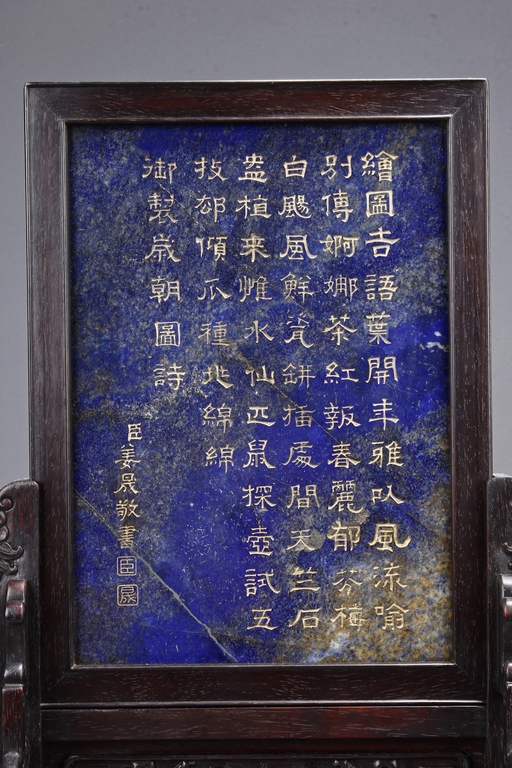 繪圖吉語葉開年雅以風流喻
別傳婀娜茶紅報春麗郁芬梅
白颺風鮮瓷缾插處間天竺石
盎植来惟水仙匹鼠探壺試五
技郤傾瓜種兆綿綿
御製歲朝圖詩
臣姜晟敬書
臣
晟